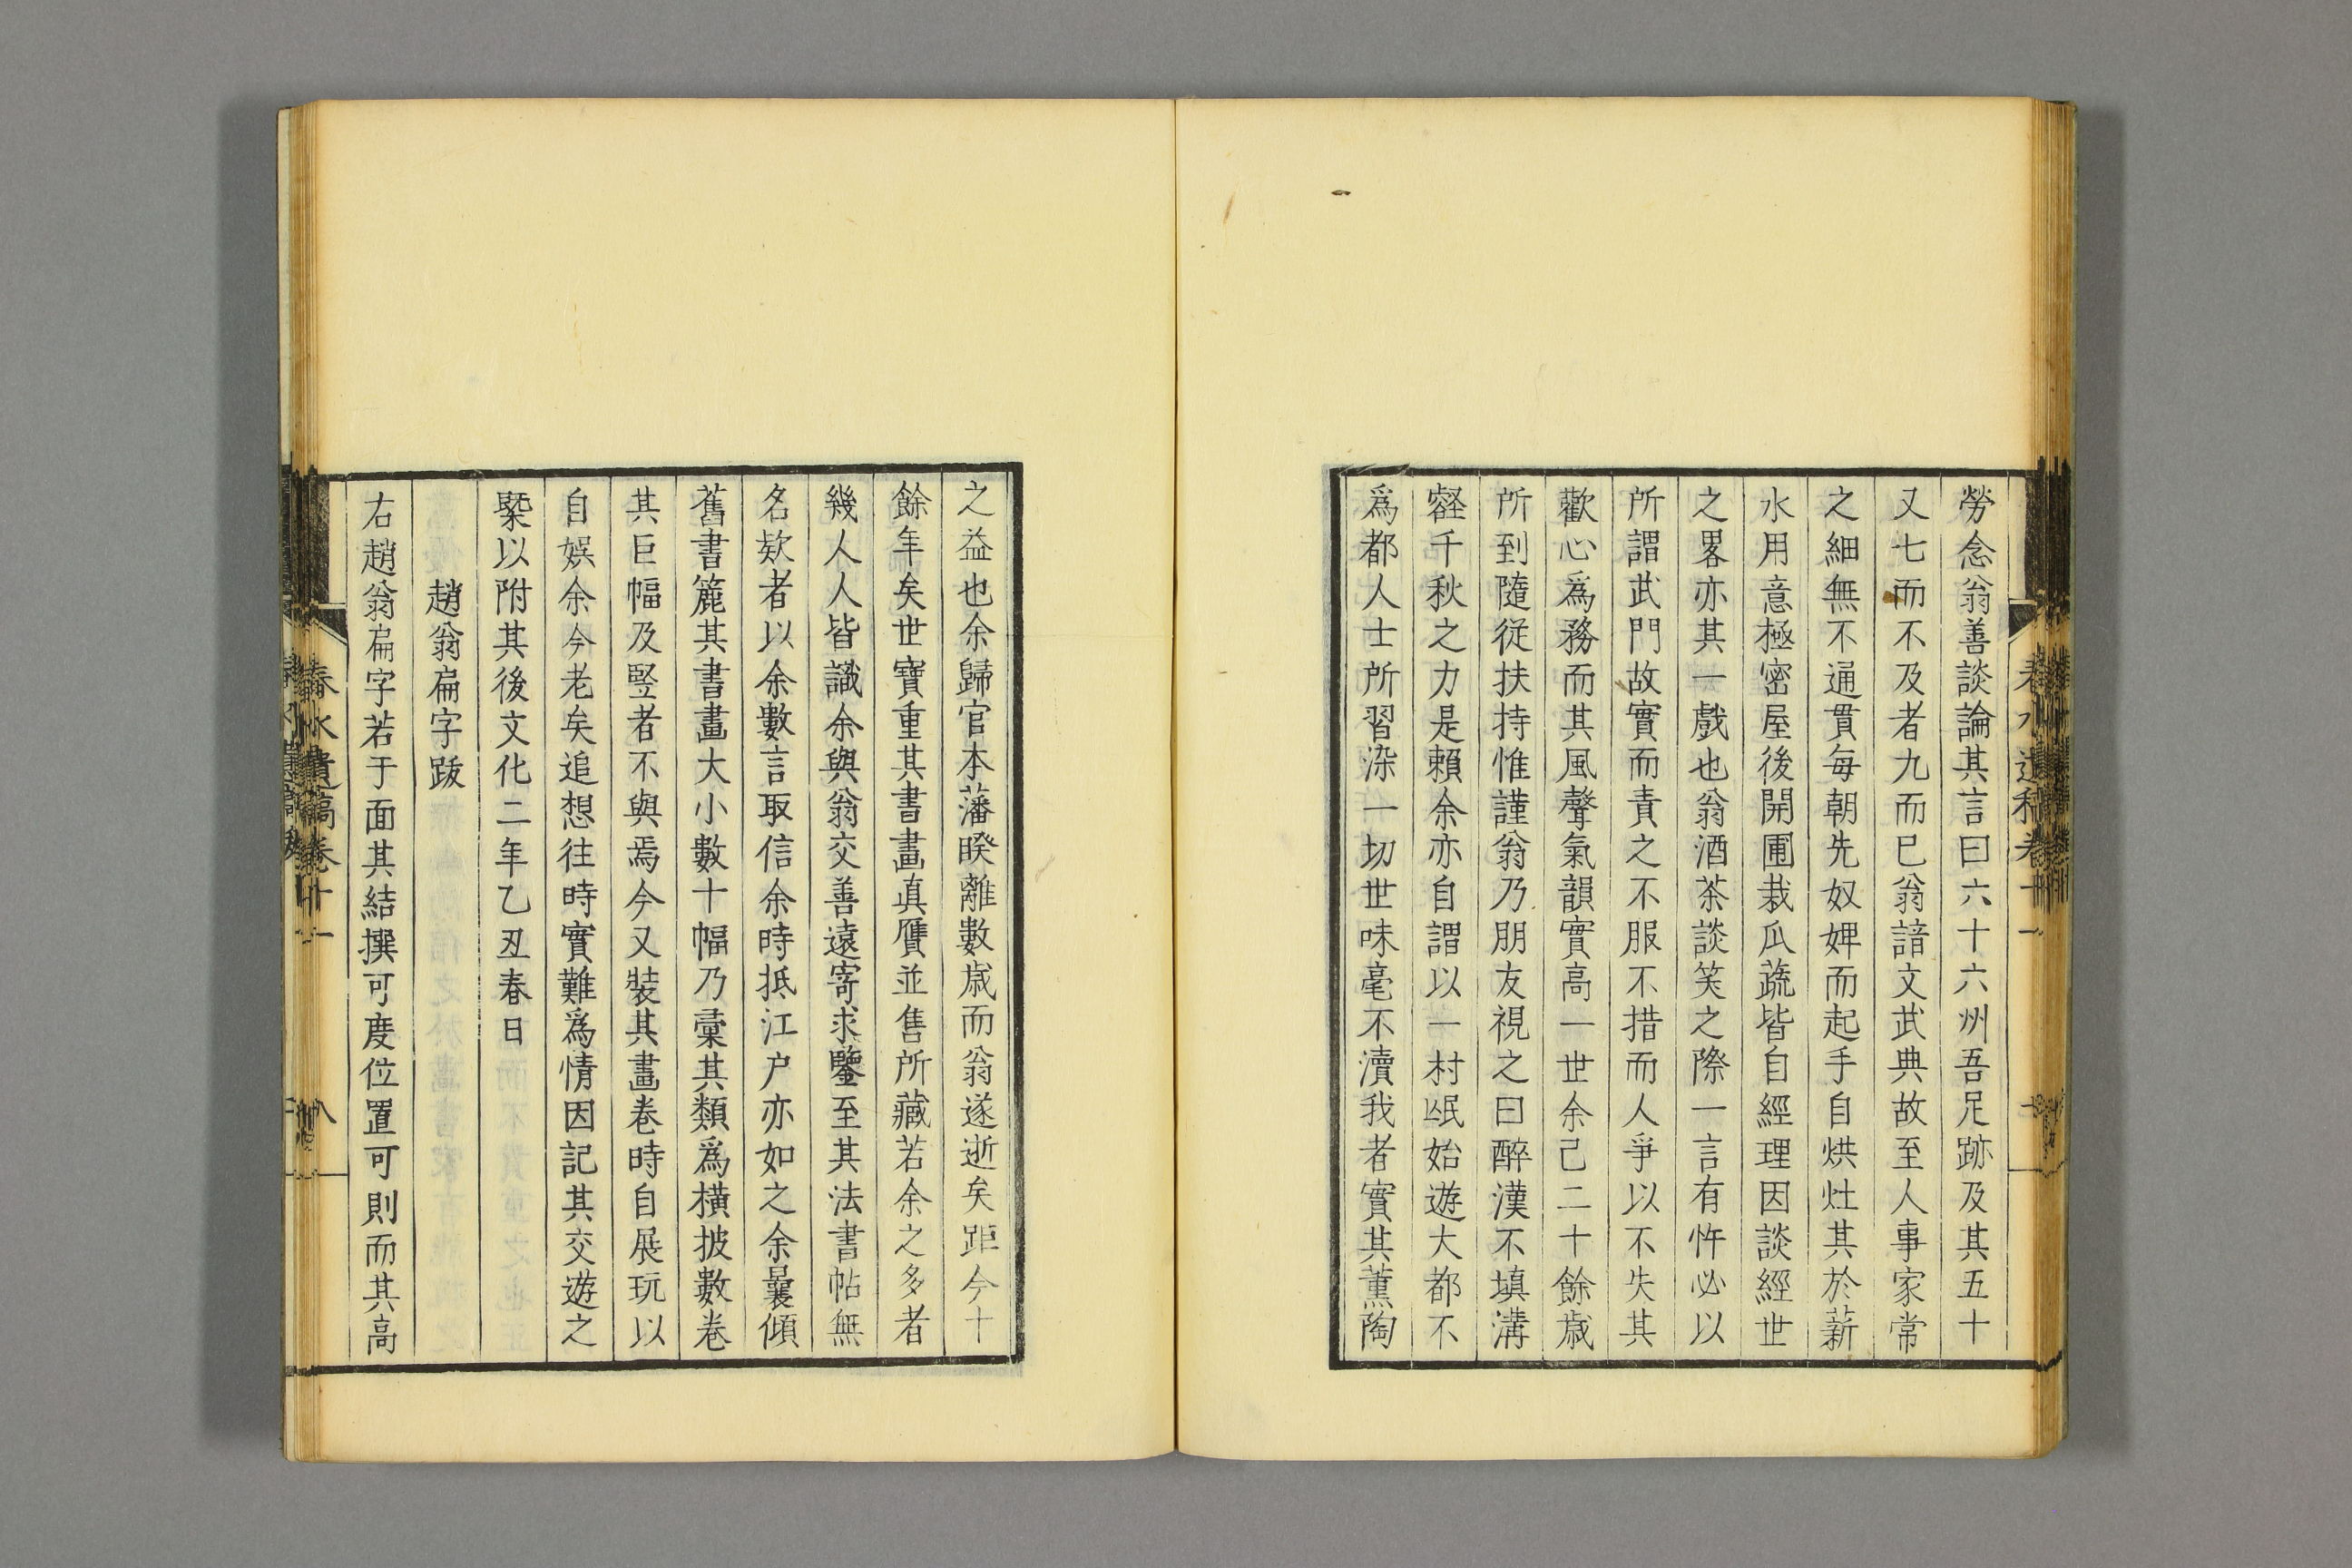 勞念翁善談論其言曰六十六州吾足跡及其五十
又七而不及者九而已翁諳文武典故至人事家常
之細無不通貫每朝先奴婢而起手自烘灶其於薪
水用意極密屋後開圃栽瓜蔬皆自經理因談經世
之畧亦其一戲也翁酒茶談笑之際一言有忤必以
所謂武門故實而責之不服不措而人爭以不失其
歡心爲務而其風聲氣韻實高一世余己二十餘歲
所到隨從扶持惟謹翁乃朋友視之曰醉漢不塡溝
壑千秋之力是賴余亦自謂以一村氓始遊大都不
爲都人士所習染一切世味毫不瀆我者實其薰陶
之益也余歸官本藩暌離數歲而翁遂逝矣距今十
餘年矣世寶重其書畫眞贋並售所藏若余之多者
幾人人皆識余與翁交善遠寄求鑒至其法書帖無
名欵者以余數言取信余時抵江户亦如之余曩傾
舊書簏其書畫大小數十幅乃彙其類爲橫披數卷
其巨幅及竪者不與焉今又裝其畫卷時自展玩以
自娛余今老矣追想往時實難爲情因記其交遊之
槩以附其後文化二年乙丑春日
趙翁扁字跋
右趙翁扁字若于面其結撰可度位置可則而其高
春水遺稿卷十一
八